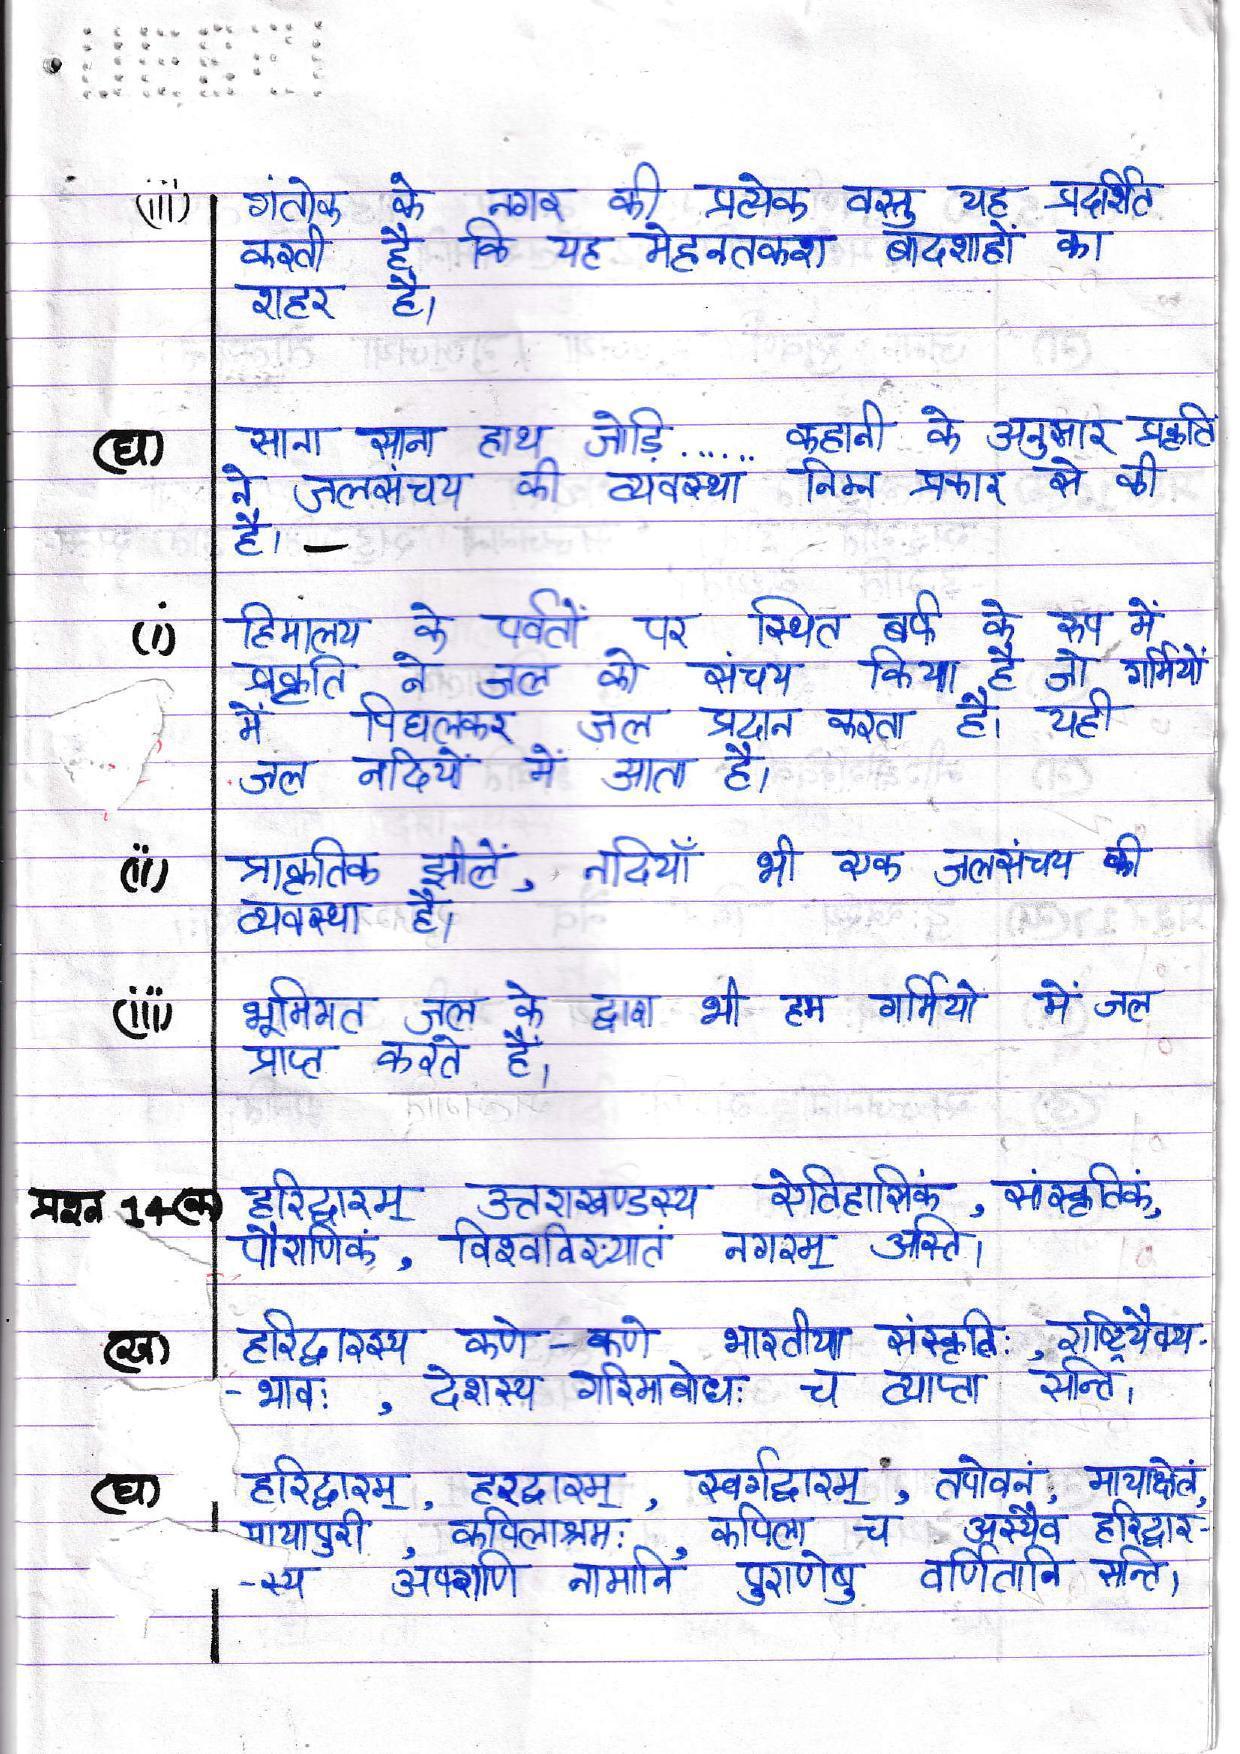 (iii) गंतोक के नगर की प्रत्येक वस्तु यह प्रदर्शित
करती है कि यह मेहनतकश बादशाहों का
शहर है।
(घ) साना साना हाथ जोड़ि...... कहानी के अनुसार प्रकृति
ने जलसंचय की व्यवस्था निम्न प्रकार से की
है। —
(i) हिमालय के पर्वतों पर स्थित बर्फ के रूप में
प्रकृति ने जल को संचय किया है जो गर्मियों
में पिघलकर जल प्रदान करता है। यही
जल नदियों में आता है।
(ii) प्राकृतिक झीलें, नदियाँ भी एक जलसंचय की
व्यवस्था है।
(iii) भूमिगत जल के द्वारा भी हम गर्मियो में जल
प्राप्त करते हैं।
प्रश्न 14(क) हरिद्वारम् उत्तराखण्डस्य ऐतिहासिकं, सांस्कृतिकं,
पौराणिकं, विश्वविख्यातं नगरम् अस्ति।
(ख) हरिद्वारस्य कणे - कणे भारतीया संस्कृतिः, राष्ट्रियैक्य-
-भावः, देशस्य गरिमाबोधः च व्याप्ता सन्ति।
(घ) हरिद्वारम्, हरद्वारम्, स्वर्गद्वारम्, तपोवनं, मायाक्षेत्रं,
मायापुरी, कपिलाश्रमः, कपिला च अस्यैव हरिद्वार-
-स्य अपराणि नामानि पुराणेषु वर्णितानि सन्ति।